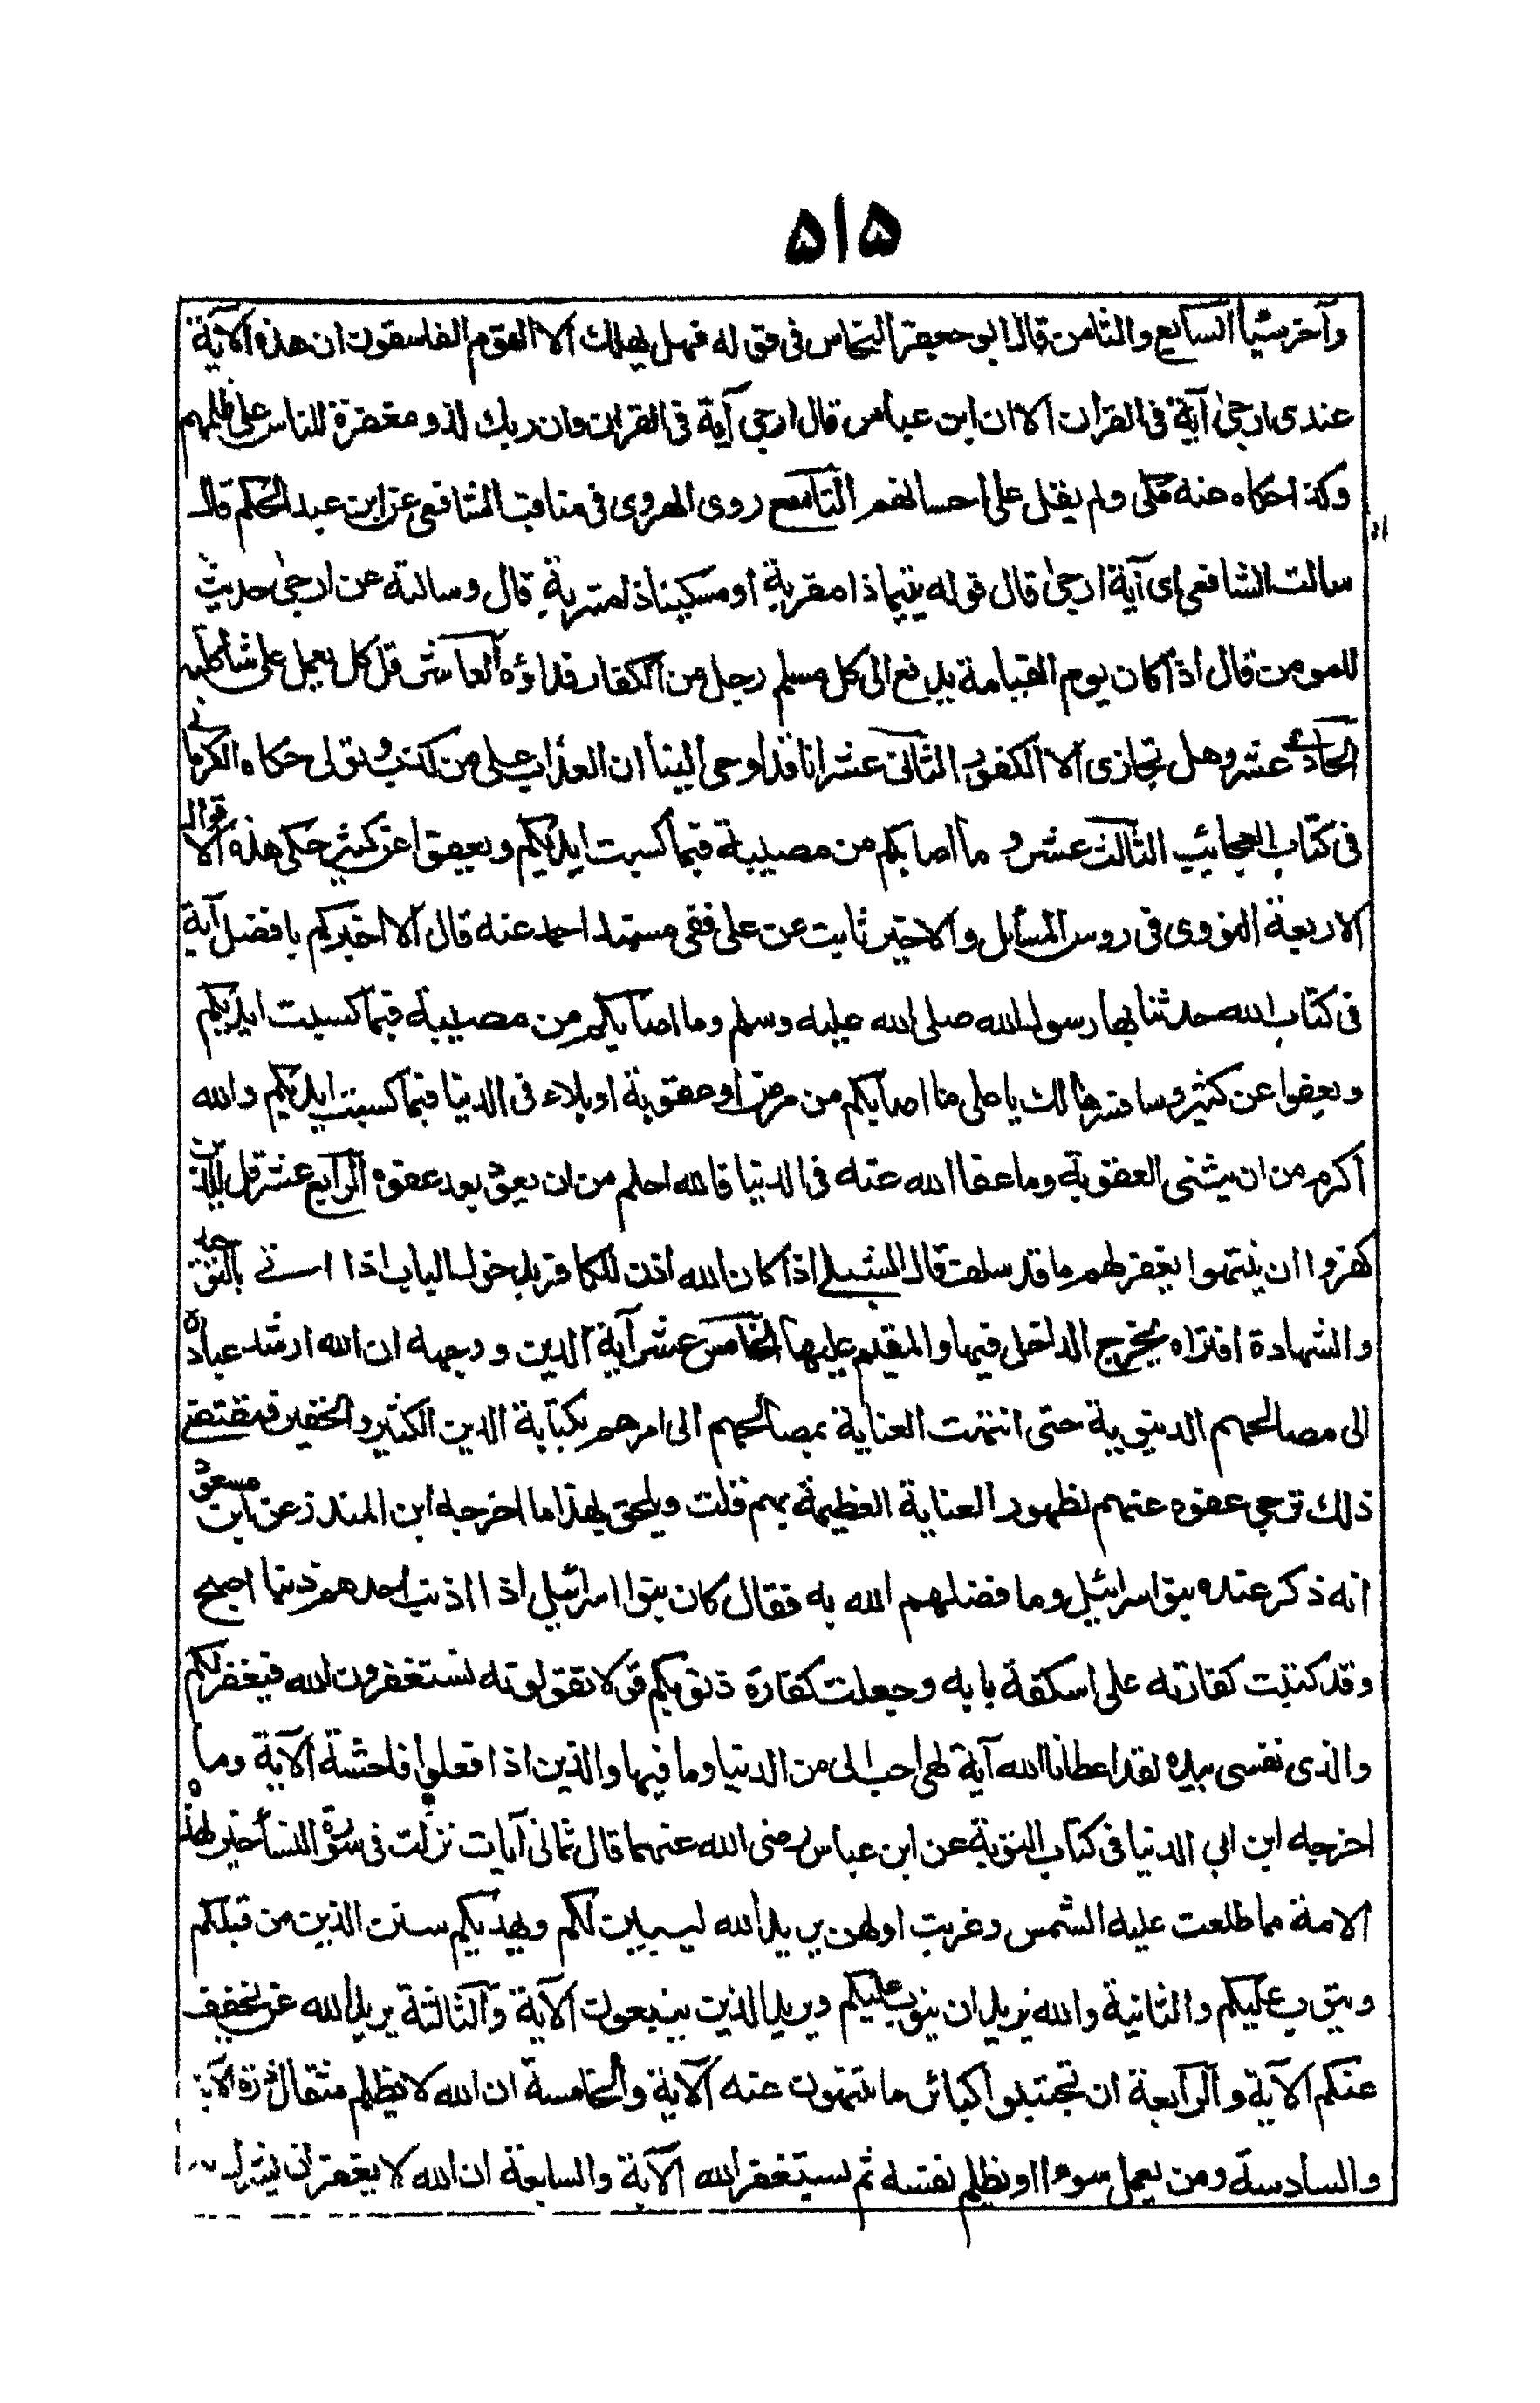 ٥١٥
وآخر سيئا السابع والثامن قال ابو جعفر النحاس فى قوله فهل يهلك الا القوم الفاسقون ان هذه الآية
عندى ارجى آية فى القرآن الا ان ابن عباس قال ارجى آية فى القران وان ربك لذو مغفرة للناس على ظلمهم
وكذا حكاه عنه مكى ولم يقل على احسانهم التاسع روى الهروى فى مناقب الشافعى عن ابن عبد الحكم قال
سالت الشافعى اى آية ارجى قال قوله يتيما ذا مقربة او مسكينا ذا متربة قال وسالته عن ارجى حديث
للمومن قال اذا كان يوم القيامة يدفع الى كل مسلم رجل من الكفار فداؤه العاشر قل كل يعمل على شاكلته
الحادى عشر وهل نجازى الا الكفور الثانى عشر انا قد اوحى الينا ان العذاب على من كذب وتولى حكاه الكرمانى
فى كتاب العجائب الثالث عشر وما اصابكم من مصيبة فبما كسبت ايديكم ويعفوا عن كثير حكى هذه الاقوال
الاربعة النووى فى روس المسائل والاخير ثابت عن على ففى مسند احمد عنه قال الا اخبركم بافضل آية
فى كتاب الله حدثنا بها رسول الله صلى الله عليه وسلم وما اصابكم من مصيبة فبما كسبت ايديكم
ويعفوا عن كثير وسافسرها لك يا على ما اصابكم من مرض او عقوبة او بلاء فى الدنيا فبما كسبت ايديكم والله
اكرم من ان يثنى العقوبة وما عفا الله عنه فى الدنيا فالله احلم من ان يعود بعد عفوه الرابع عشر قل للذين
كفروا ان ينتهوا يغفر لهم ما قد سلف قال الشبلى اذا كان الله اذن للكافر بدخول الباب اذا اتى بالتوحيد
والشهادة افتراه يخرج الداخل فيها والمقيم عليها الخامس عشر آية الدين ووجهه ان الله ارشد عباده
الى مصالحهم الدنيوية حتى انتهت العناية بمصالحهم الى امرهم بكتابة الدين الكثير والحقير فمقتضى
ذلك ترجى عفوه عنهم لظهور العناية العظيمة بهم قلت ويلحق بهذا ما اخرجه ابن المنذر عن ابن مسعود
انه ذكر عنده بنو اسرائيل وما فضلهم الله به فقال كان بنو اسرائيل اذا اذنب احدهم ذنبا اصبح
وقد كتبت كفارته على اسكفة بابه وجعلت كفارة ذنوبكم قولا تقولونه تستغفرون الله فيغفر لكم
والذى نفسى بيده لقد اعطانا الله آية لهى احب الى من الدنيا وما فيها والذين اذا فعلوا فاحشة الآية وما
اخرجه ابن ابى الدنيا فى كتاب التوبة عن ابن عباس رضى الله عنهما قال ثمانى آيات نزلت فى سورة النسأ خير لهذه
الامة مما طلعت عليه الشمس وغربت اولهن يريد الله ليبين لكم ويهديكم سنن الذين من قبلكم
ويتوب عليكم والثانية والله يريد ان يتوب عليكم ويريد الذين يتبعون الآية والثالثة يريد الله ان يخفف
عنكم الآية والرابعة ان تجتنبوا كبائر ما تنهون عنه الآية والخامسة ان الله لا يظلم مثقال ذرة الآية
والسادسة ومن يعمل سوءا او يظلم نفسه ثم يستغفر الله الآية والسابعة ان الله لا يغفر ان يشرك